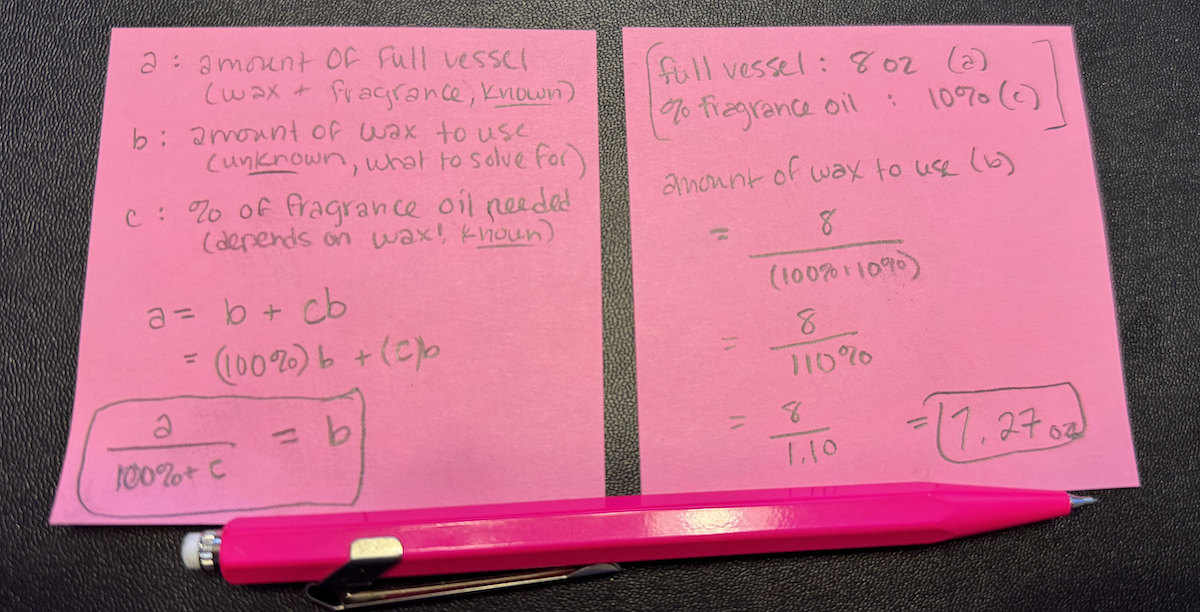 a : amount of full vessel
(wax + fragrance, known)
b : amount of wax to use
(unknown, what to solve for)
c : % of fragrance oil needed
(depends on wax! known)
a = b + cb
= (100%) b + (c)b
a
100% + c
= b
full vessel : 8 oz (a)
% fragrance oil : 10% (c)
amount of wax to use (b)
= 8
(100% + 10%)
= 8
110%
= 8
1.10
= 7.27 oz